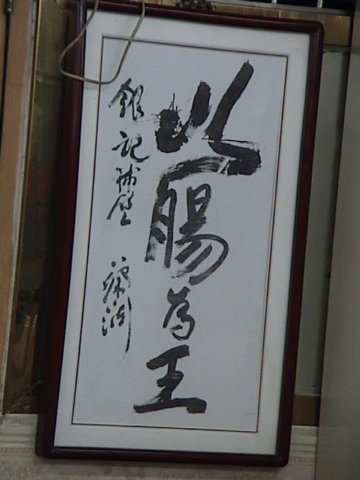 以腸為王
銀記補壁